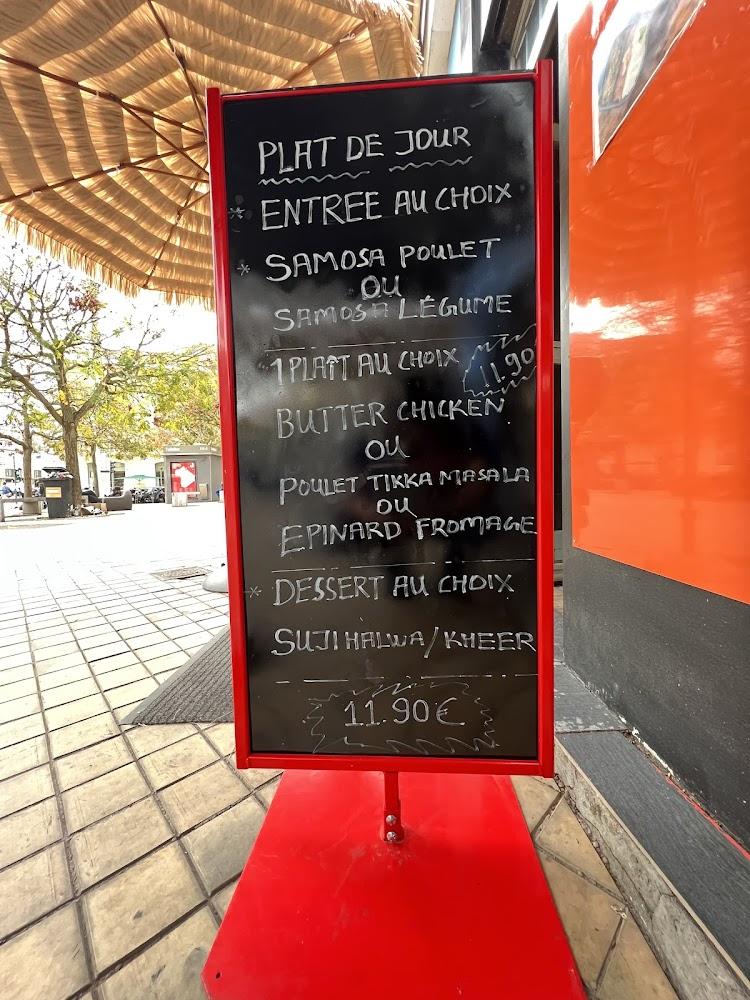 PLAT DE JOUR
* ENTREE AU CHOIX
* SAMOSA POULET
OU
SAMOSA LÉGUME
1 PLAÎT AU CHOIX 11.90
BUTTER CHICKEN
OU
POULET TIKKA MASALA
OU
EPINARD FROMAGE
* DESSERT AU CHOIX
SUJI HALWA / KHEER
11.90€